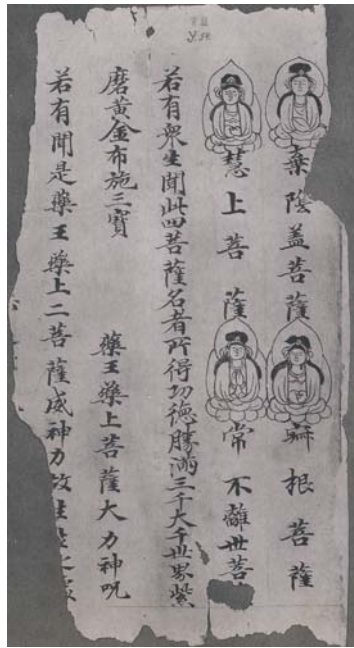 棄陰盖菩薩 根菩薩
慧上菩薩 常不離世菩
若有衆生聞此四菩薩名者所得功德勝滿三千大千世界紫
磨黃金布施三寶 藥王藥上菩薩大力神呪
若有聞是藥王藥上二菩薩威神力故